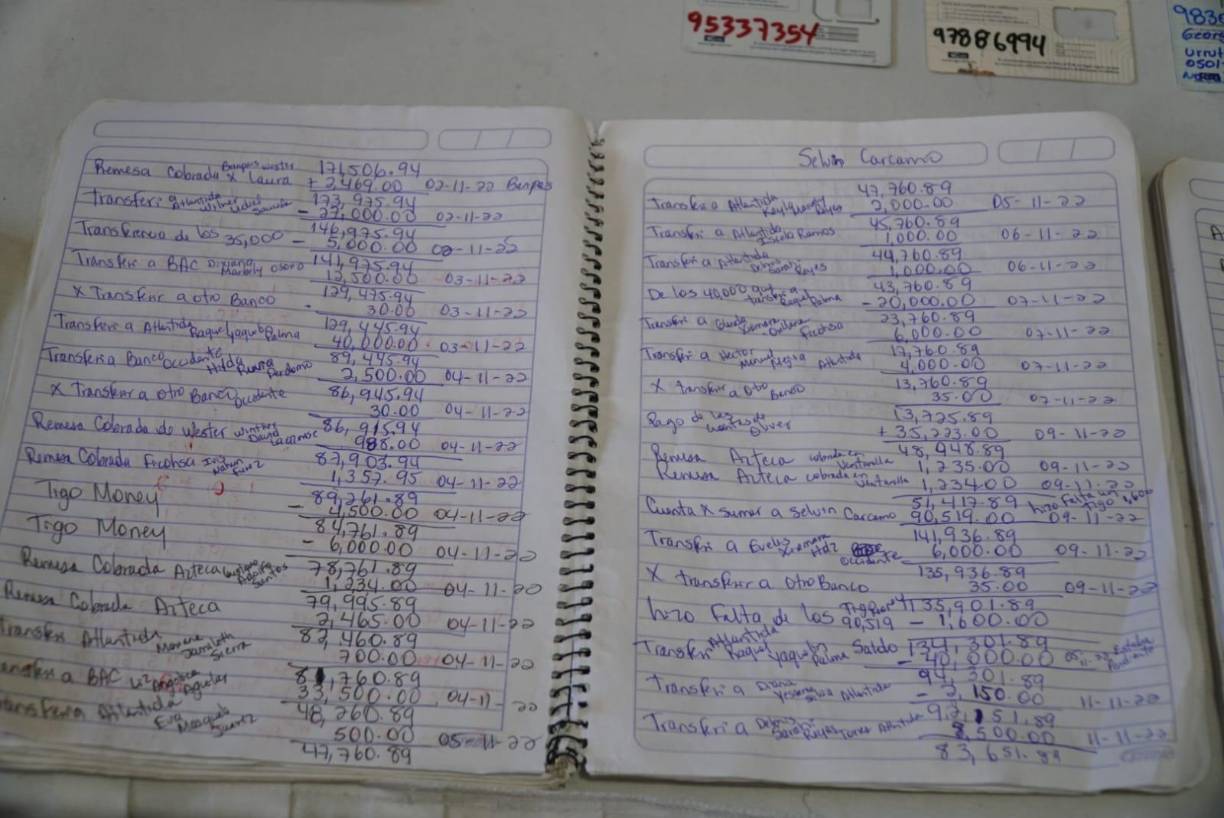 95337354
97886994
983
Georg
Urrut
0501-
Remesa Cobrada x Laura Banpais wester 171,506.94
+ 2,469.00 02-11-22 Banpais
Transferi Atlantida Wilmer 173,975.94
- 27,000.00 02-11-22
146,975.94
Transferencia de los 35,000 - 5,000.00 02-11-22
141,975.94
Transferi a BAC Marbely Osorio 12,500.00 03-11-22
129,475.94
X Transferir a otro Banco - 30.00 03-11-22
129,445.94
Transferi a Atlantida Raquel Yaquelin Palma 40,000.00 03-11-22
89,445.94
Transferi a Banco Occidente Hilda Perdomo 2,500.00 04-11-22
86,945.94
X Transferir a otro Banco Occidente 30.00 04-11-22
86,915.94
Remesa Cobrada de Wester Winther David Carcamo 988.00 04-11-22
87,903.94
Remesa Cobrada Ficohsa 1,357.95 04-11-22
89,261.89
Tigo Money - 4,500.00 04-11-22
84,761.89
Tigo Money - 6,000.00 04-11-22
78,761.89
Remesa Cobrada Azteca Santos 1,234.00 04-11-20
79,995.89
Remesa Cobrada Azteca 2,465.00 04-11-22
82,460.89
Transferi Atlantida Sierra 700.00 04-11-22
81,760.89
Transferi a BAC Aguilar 33,500.00 04-11-20
48,260.89
Transferi a Atlantida Eva Suarez 500.00 05-11-22
47,760.89
Selvin Carcamo
47,760.89
Transferi a Atlantida Reyes 2,000.00 05-11-22
45,760.89
Transferi a Atlantida Ramos 1,000.00 06-11-22
44,760.89
Transferi a Atlantida Reyes 1,000.00 06-11-22
43,760.89
De los 40,000 que transferi a Raquel Palma - 20,000.00 07-11-22
23,760.89
Transferi a Ficohsa 6,000.00 07-11-22
17,760.89
Transferi a Hector Manuel Atlantida 4,000.00 07-11-22
13,760.89
X transferir a Otro Banco 35.00 07-11-22
13,725.89
Pago de las Oliver + 35,223.00 09-11-20
48,948.89
Remesa Azteca cobrada en Ventanilla 1,235.00 09-11-22
Remesa Azteca cobrada Ventanilla 1,234.00 09-11-22
51,417.89 hizo falta un tigo 1,600
Cuenta X sumar a Selvin Carcamo 90,519.00 09-11-22
141,936.89
Transferi a Evelin Xiomara Hdz Occidente 6,000.00 09-11-22
135,936.89
X transferir a otro Banco 35.00 09-11-22
135,901.89
hizo Falta de los 90,519 - 1,600.00
Transferi Atlantida Raquel Yaquelin Palma Saldo 134,301.89
- 40,000.00 Estaba Pendiente
94,301.89
Transferi a Diana Silva Atlantida - 2,150.00 11-11-22
92,151.89
Transferi a Reyes Torres Atlantida 8,500.00 11-11-22
83,651.89